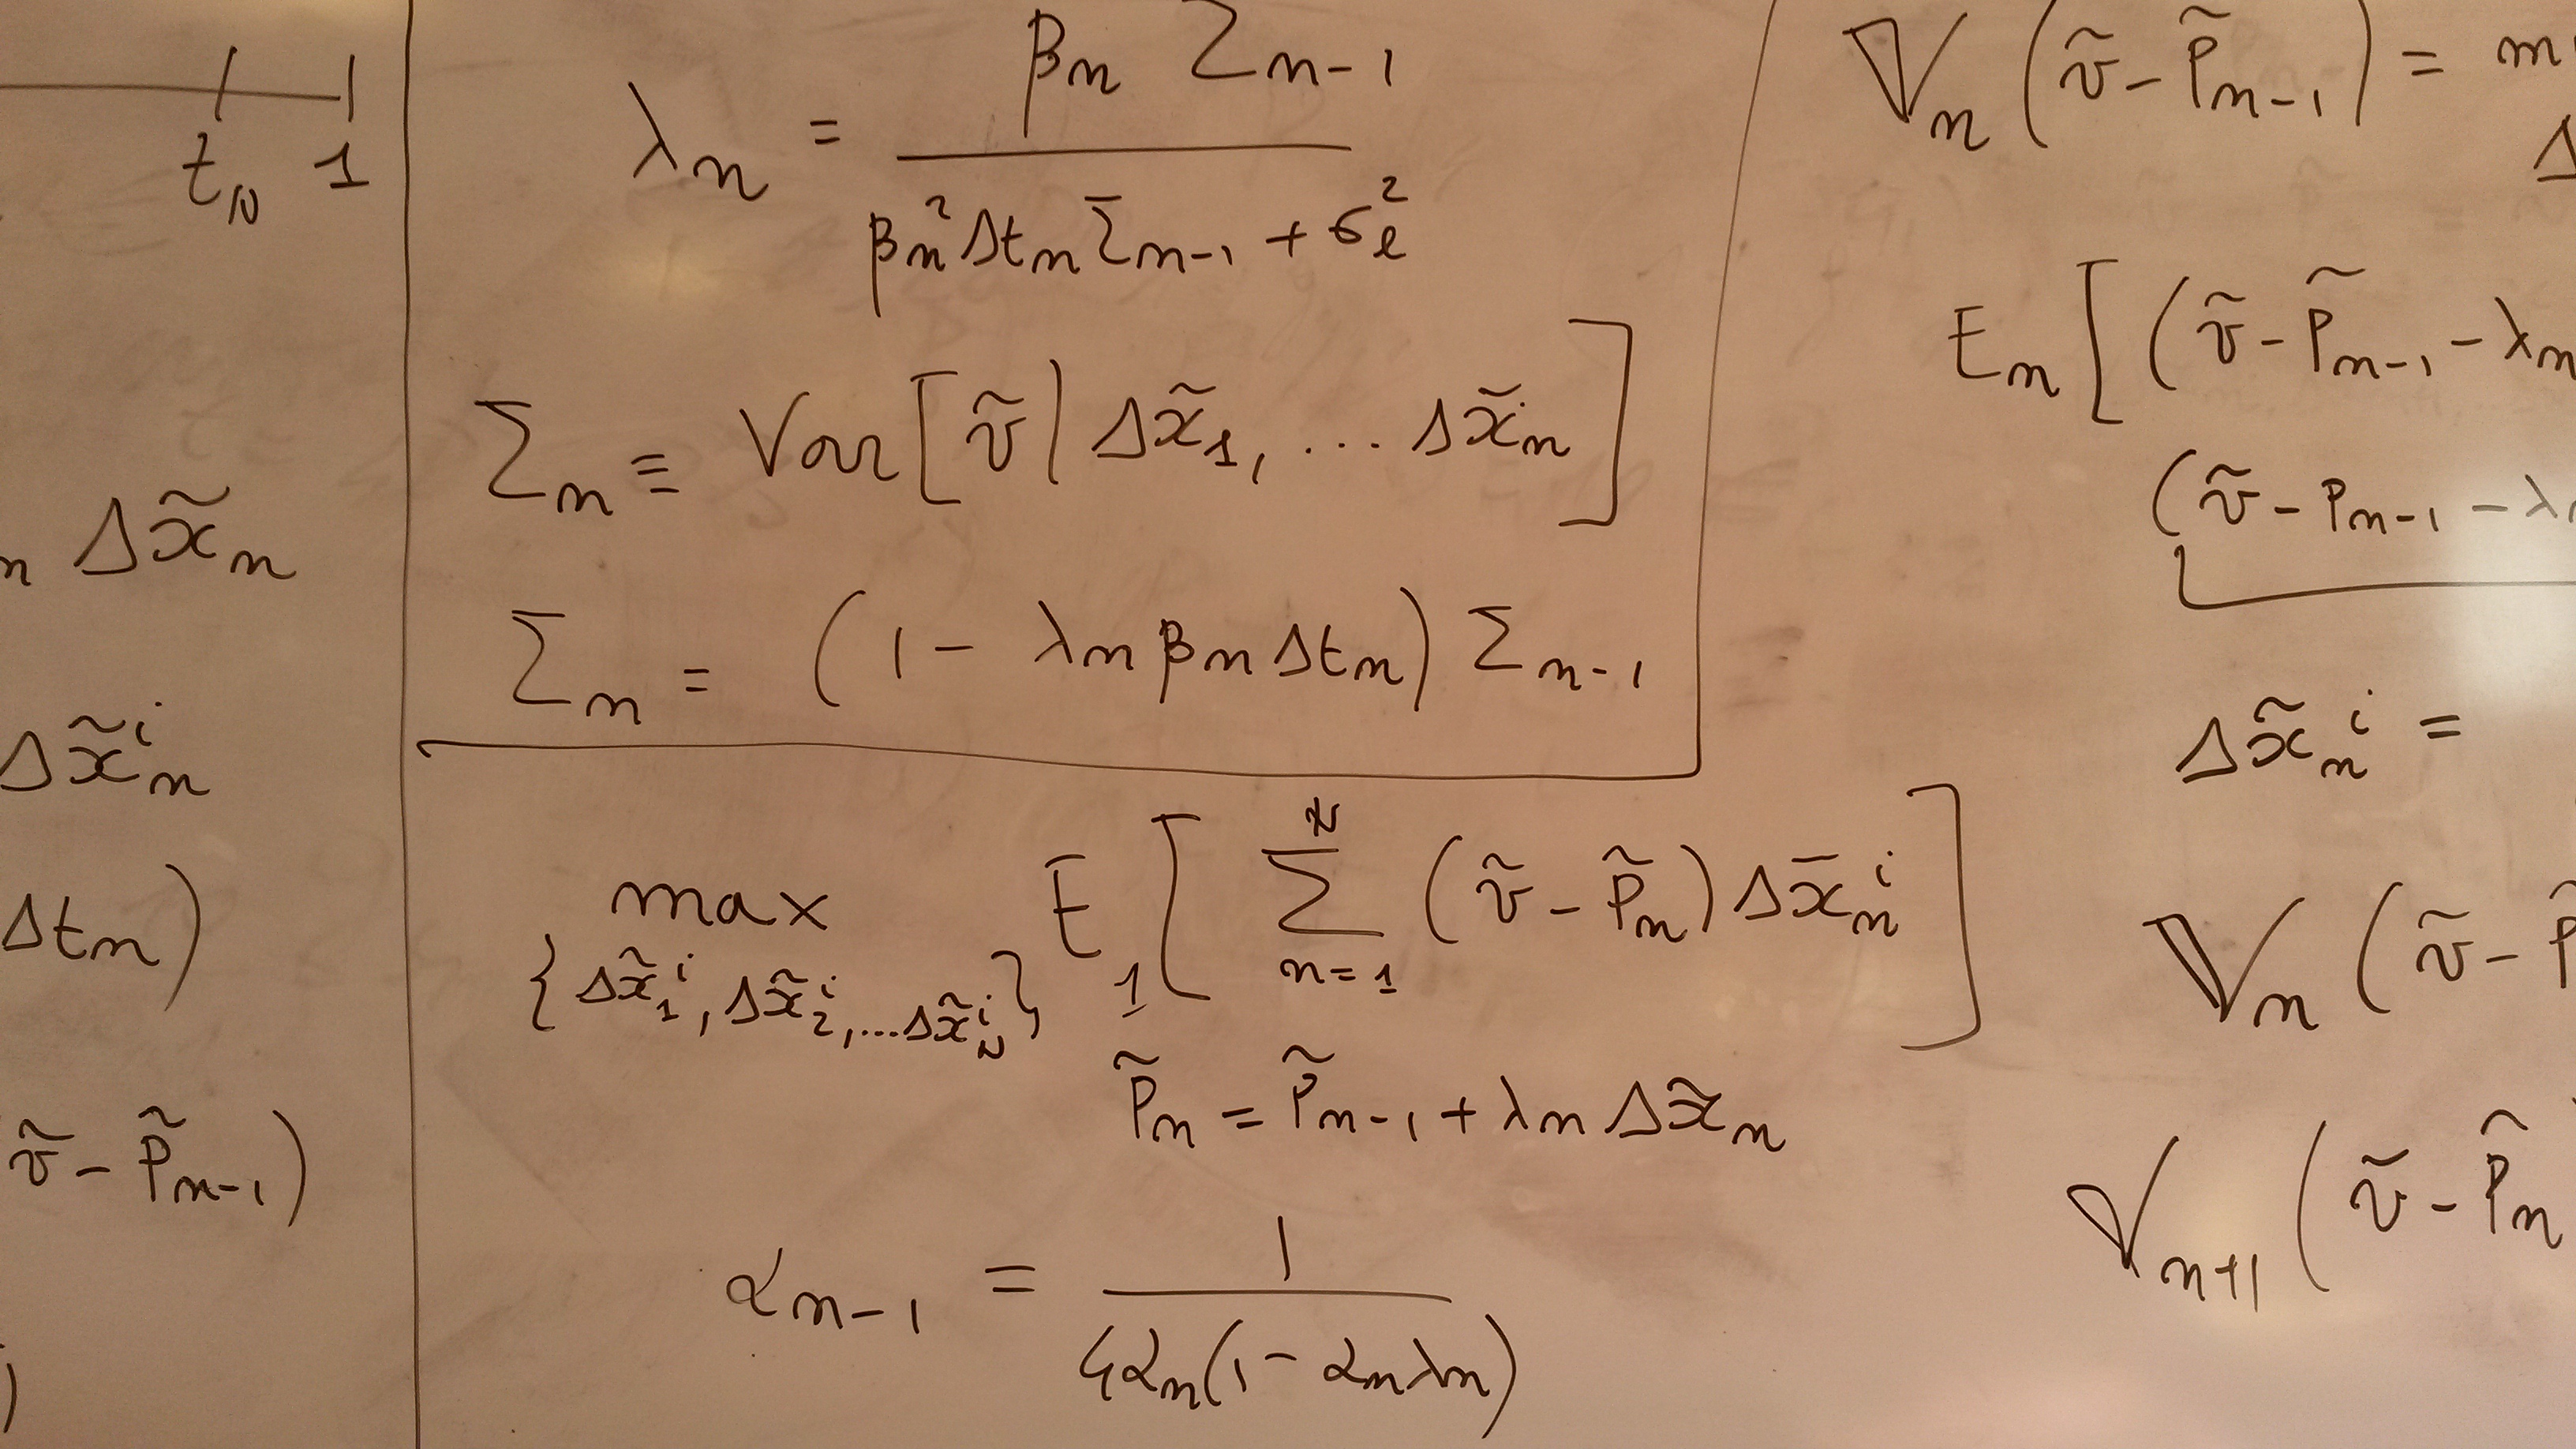 t_N 1
_n Δx̃_n
Δx̃_n^i
Δt_n)
ṽ - p̃_{n-1})
)
λ_n = β_n Σ_{n-1} / (β_n^2 Δt_n Σ_{n-1} + σ_ℓ^2)
Σ_n ≡ Var[ṽ | Δx̃_1, ... Δx̃_n]
Σ_n = (1 - λ_n β_n Δt_n) Σ_{n-1}
max_{{Δx̃_1^i, Δx̃_2^i, ... Δx̃_N^i}} E_1[Σ_{n=1}^N (ṽ - p̃_n) Δx̄_n^i]
p̃_n = p̃_{n-1} + λ_n Δx̃_n
α_{n-1} = 1 / (4α_n(1 - α_n λ_n))
V_n(ṽ - p̃_{n-1}) = m
Δ
E_n[(ṽ - p̃_{n-1} - λ_n
(ṽ - p_{n-1} - λ
Δx̃_n^i =
V_n(ṽ - p̃
V_{n+1}(ṽ - p̃_n